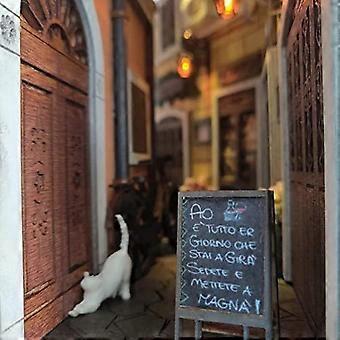 AO
E' TUTTO ER
GIORNO CHE
STAI A GIRÀ
SEDETE E
METTETE A
MAGNÀ!